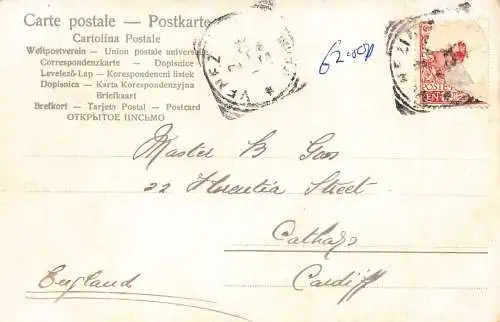 Carte postale — Postkarte
Cartolina Postale
Weltpostverein — Union postale universelle
Correspondenzkarte — Dopisnice
Levelező-Lap — Korespondenční listek
Dopisnica — Karta Korespondenzyjna
Briefkaart
Brefkort — Tarjeta Postal — Postcard
ОТКРЫТОЕ ПИСЬМО
VENEZ
VENEZIA
POSTE
CENT
Master B Goss
22 Florentia Street
Cathays
Cardiff
England